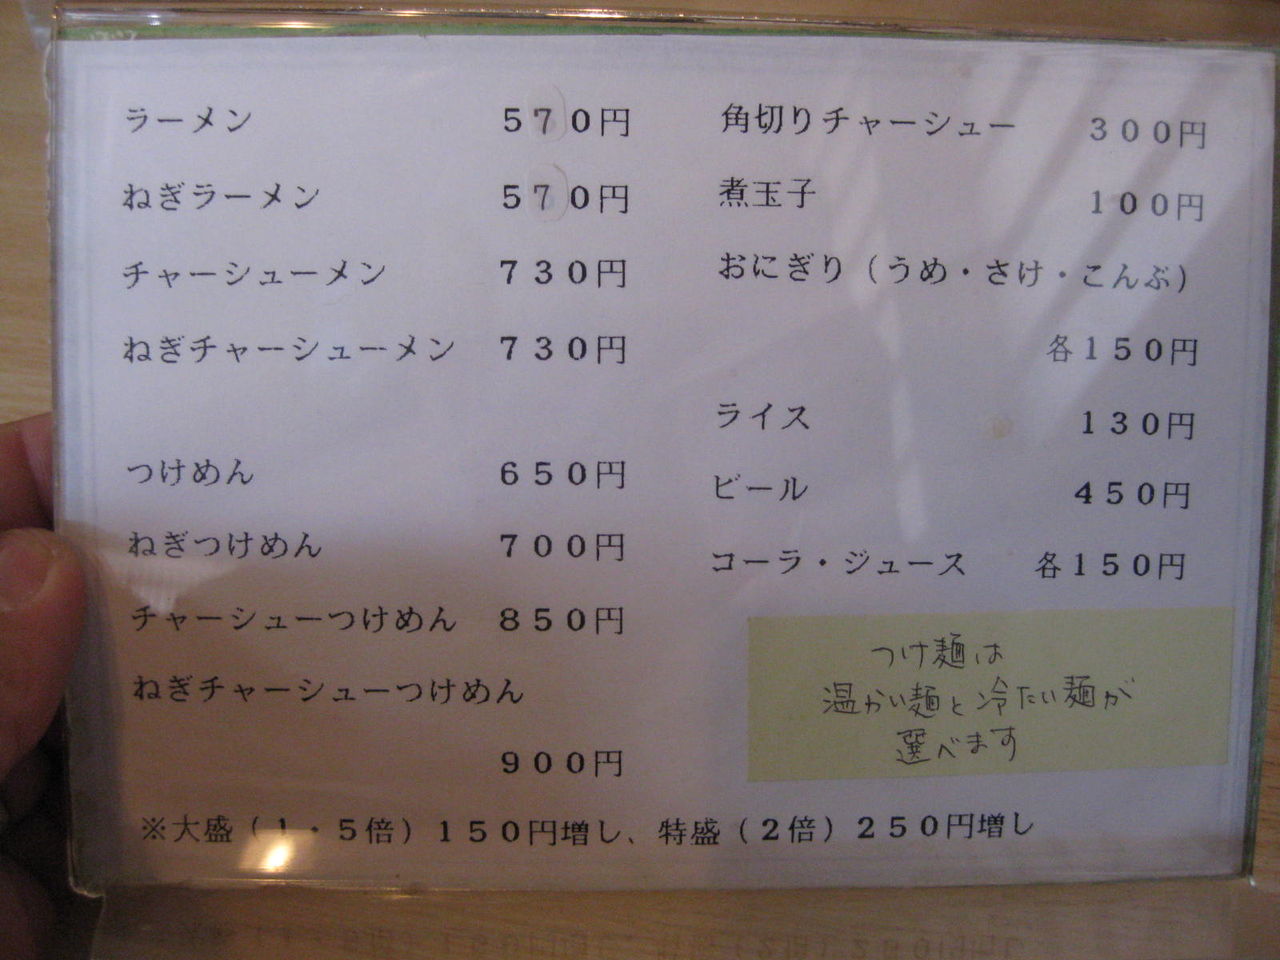 ラーメン 570円
ねぎラーメン 570円
チャーシューメン 730円
ねぎチャーシューメン 730円
つけめん 650円
ねぎつけめん 700円
チャーシューつけめん 850円
ねぎチャーシューつけめん
900円
角切りチャーシュー 300円
煮玉子 100円
おにぎり（うめ・さけ・こんぶ）
各150円
ライス 130円
ビール 450円
コーラ・ジュース 各150円
つけ麺は
温かい麺と冷たい麺が
選べます
※大盛（1・5倍）150円増し、特盛（2倍）250円増し